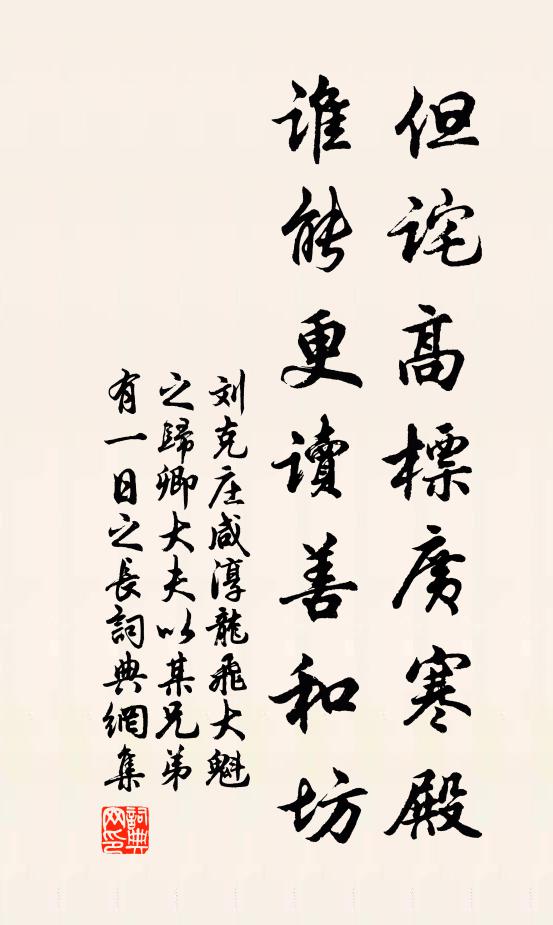 但詫高標廣寒殿
誰能更讀善和坊
刘克庄咸淳龍飛大魁
之歸卿大夫以某兄弟
有一日之長詞典網集
詞典
网印